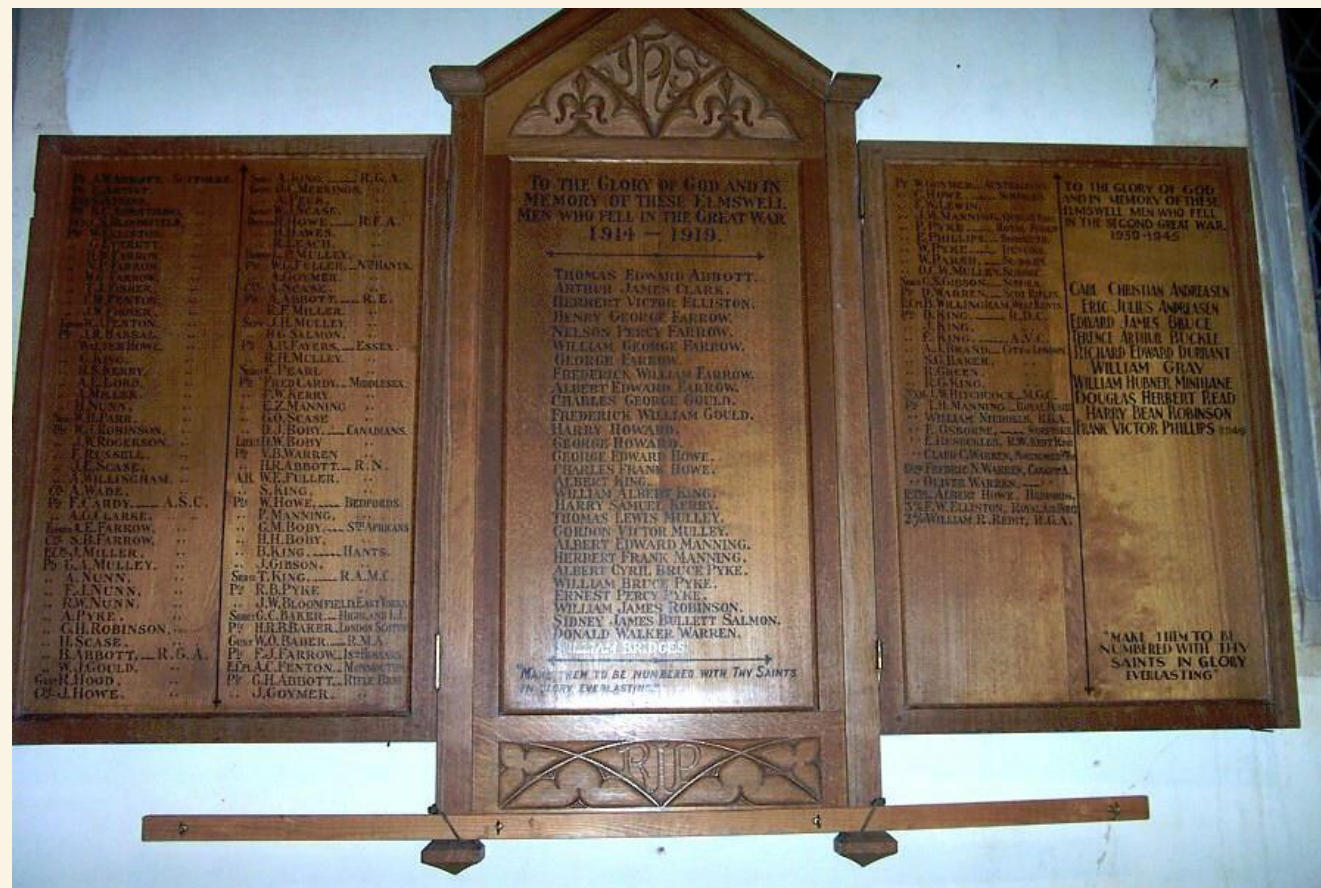 Pte A.W.ABBOTT. SUFFOLKS.
.. W.ELLISTON.
.. G.EVERETT.
.. H.G.FARROW.
.. N.P.FARROW.
.. W.G.FARROW.
.. T.J.FISHER.
.. F.W.FENTON.
.. J.W.FISHER.
W.J.FENTON.
Pte J.R.HASSALL.
.. WALTER HOWE.
.. G.KING.
.. H.S.KERRY.
.. A.E.LORD.
.. A.MILLER.
.. H.NUNN.
C.H.PARR.
Pte W.J.ROBINSON.
.. J.W.ROGERSON.
.. F.RUSSELL.
.. J.E.SCASE.
.. A.WILLINGHAM.
Cpl A.WADE.
Pte F.CARDY. A.S.C.
.. A.G.CLARKE.
A.E.FARROW.
Cpl S.B.FARROW.
J.MILLER.
Pte G.A.MULLEY.
.. A.NUNN.
.. E.J.NUNN.
.. R.W.NUNN.
.. A.PYKE.
.. G.H.ROBINSON.
.. H.SCASE.
.. B.ABBOTT. R.G.A.
.. W.J.GOULD.
Gnr R.HOOD.
Cpl J.HOWE.
A.KING. R.G.A.
O.C.MERRINGS.
A.PECK.
W.SCASE.
E.HOWE. R.F.A.
H.HAWES.
R.LEACH.
P.MULLEY.
Pte W.G.FULLER. Nth HANTS.
.. A.GOYMER.
A.SCASE.
Pte A.ABBOTT. R.E.
.. R.F.MILLER.
J.H.MULLEY.
H.G.SALMON.
Pte A.B.FAYERS. ESSEX.
.. R.H.MULLEY.
C.PEARL
Pte FRED CARDY. MIDDLESEX.
.. F.W.KERRY
.. E.Z.MANNING
.. G.O.SCASE
.. D.J.BOBY. CANADIANS.
H.W.BOBY
Pte V.B.WARREN
.. H.R.ABBOTT. R.N.
A.B. W.E.FULLER.
.. S.KING.
Pte W.HOWE. BEDFORDS.
.. P.MANNING.
.. G.M.BOBY. Sth AFRICANS
.. H.H.BOBY.
.. B.KING. HANTS.
.. J.GIBSON.
T.KING. R.A.M.C.
Pte R.B.PYKE
.. J.W.BLOOMFIELD. EAST YORKS.
G.C.BAKER. HIGHLAND L.I.
Pte H.R.B.BAKER. LONDON SCOTTISH
W.O.BABER. R.M.A.
Pte F.J.FARROW.
A.C.FENTON. MONMOUTH
Pte G.H.ABBOTT. RIFLE BRIG.
.. J.GOYMER.
IHS
TO THE GLORY OF GOD AND IN
MEMORY OF THESE ELMSWELL
MEN WHO FELL IN THE GREAT WAR
1914 — 1919.
THOMAS EDWARD ABBOTT.
ARTHUR JAMES CLARK.
HERBERT VICTOR ELLISTON.
HENRY GEORGE FARROW.
NELSON PERCY FARROW.
WILLIAM GEORGE FARROW.
GEORGE FARROW.
FREDERICK WILLIAM FARROW.
ALBERT EDWARD FARROW.
CHARLES GEORGE GOULD.
FREDERICK WILLIAM GOULD.
HARRY HOWARD.
GEORGE HOWARD.
GEORGE EDWARD HOWE.
CHARLES FRANK HOWE.
ALBERT KING.
WILLIAM ALBERT KING.
HARRY SAMUEL KERRY.
THOMAS LEWIS MULLEY.
GORDON VICTOR MULLEY.
ALBERT EDWARD MANNING.
HERBERT FRANK MANNING.
ALBERT CYRIL BRUCE PYKE.
WILLIAM BRUCE PYKE.
ERNEST PERCY PYKE.
WILLIAM JAMES ROBINSON.
SIDNEY JAMES BULLETT SALMON.
DONALD WALKER WARREN.
WILLIAM BRIDGES
"MAKE THEM TO BE NUMBERED WITH THY SAINTS
IN GLORY EVERLASTING."
RIP
Pte W.GOYMER. AUSTRALIANS.
.. F.HOWE.
.. F.W.LEWIN.
.. J.W.MANNING.
.. P.PYKE. ROYAL FUSILIERS
.. E.PHILLIPS.
.. W.PYKE. DEVONS.
.. W.PARR. SUSSEX.
.. D.C.W.MULLEY. SURREY.
G.S.GIBSON. SUFFOLK.
Pte D.WARREN. SCOT RIFLES.
B.WILLINGHAM.
Pte D.KING. R.D.C.
.. J.KING.
.. E.KING. A.V.C.
.. A.J.BRAND. CITY OF LONDON.
.. S.G.BAKER.
.. R.GREEN.
.. R.G.KING.
J.W.HITCHCOCK. M.G.C.
Pte L.H.MANNING.
.. WILLIAM NICHOLLS, R.G.A.
.. F.OSBORNE.
.. CLAUD C.WARREN,
FREDRIC N.WARREN,
.. OLIVER WARREN.
ALBERT HOWE. BEDFORDS.
F.W.ELLISTON, ROYAL AIR FORCE
WILLIAM R.REDIT, R.G.A.
TO THE GLORY OF GOD
AND IN MEMORY OF THESE
ELMSWELL MEN WHO FELL
IN THE SECOND GREAT WAR.
1939-1945
CARL CHRISTIAN ANDREASEN
ERIC JULIUS ANDREASEN
EDWARD JAMES BRUCE
TERENCE ARTHUR BUCKLE
RICHARD EDWARD DURRANT
WILLIAM GRAY
WILLIAM HUBNER MINIHANE
DOUGLAS HERBERT READ
HARRY BEAN ROBINSON
FRANK VICTOR PHILLIPS
"MAKE THEM TO BE
NUMBERED WITH THY
SAINTS IN GLORY
EVERLASTING"